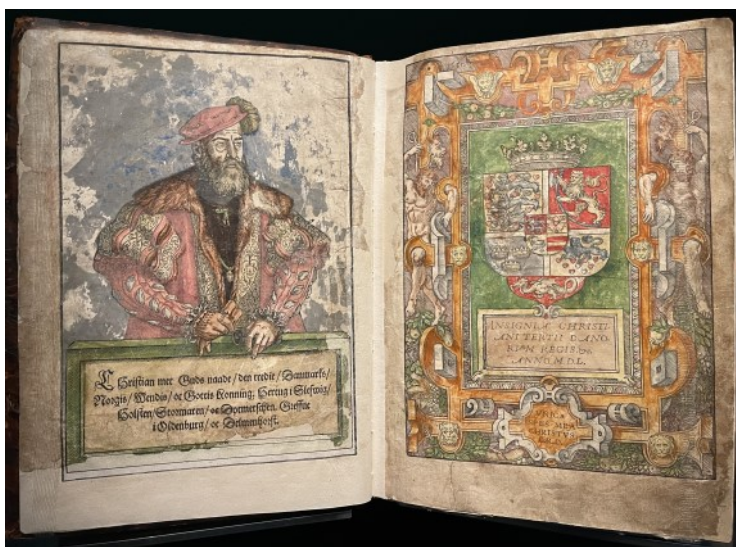 Christian met Guds naade / den tredie / Danmarks /
Norgis / Wendis / oc Gottis Konning, Hertug i Slesuig /
Holsten / Stormaren / oc Dytmerschen, Greffue
i Oldenburg / oc Delmenhorst.
INSIGNIA CHRISTI
ANI TERTII DANO
RVM REGIS. &c.
ANNO M.D.L.
VNICA
SPES MEA
CHRISTVS